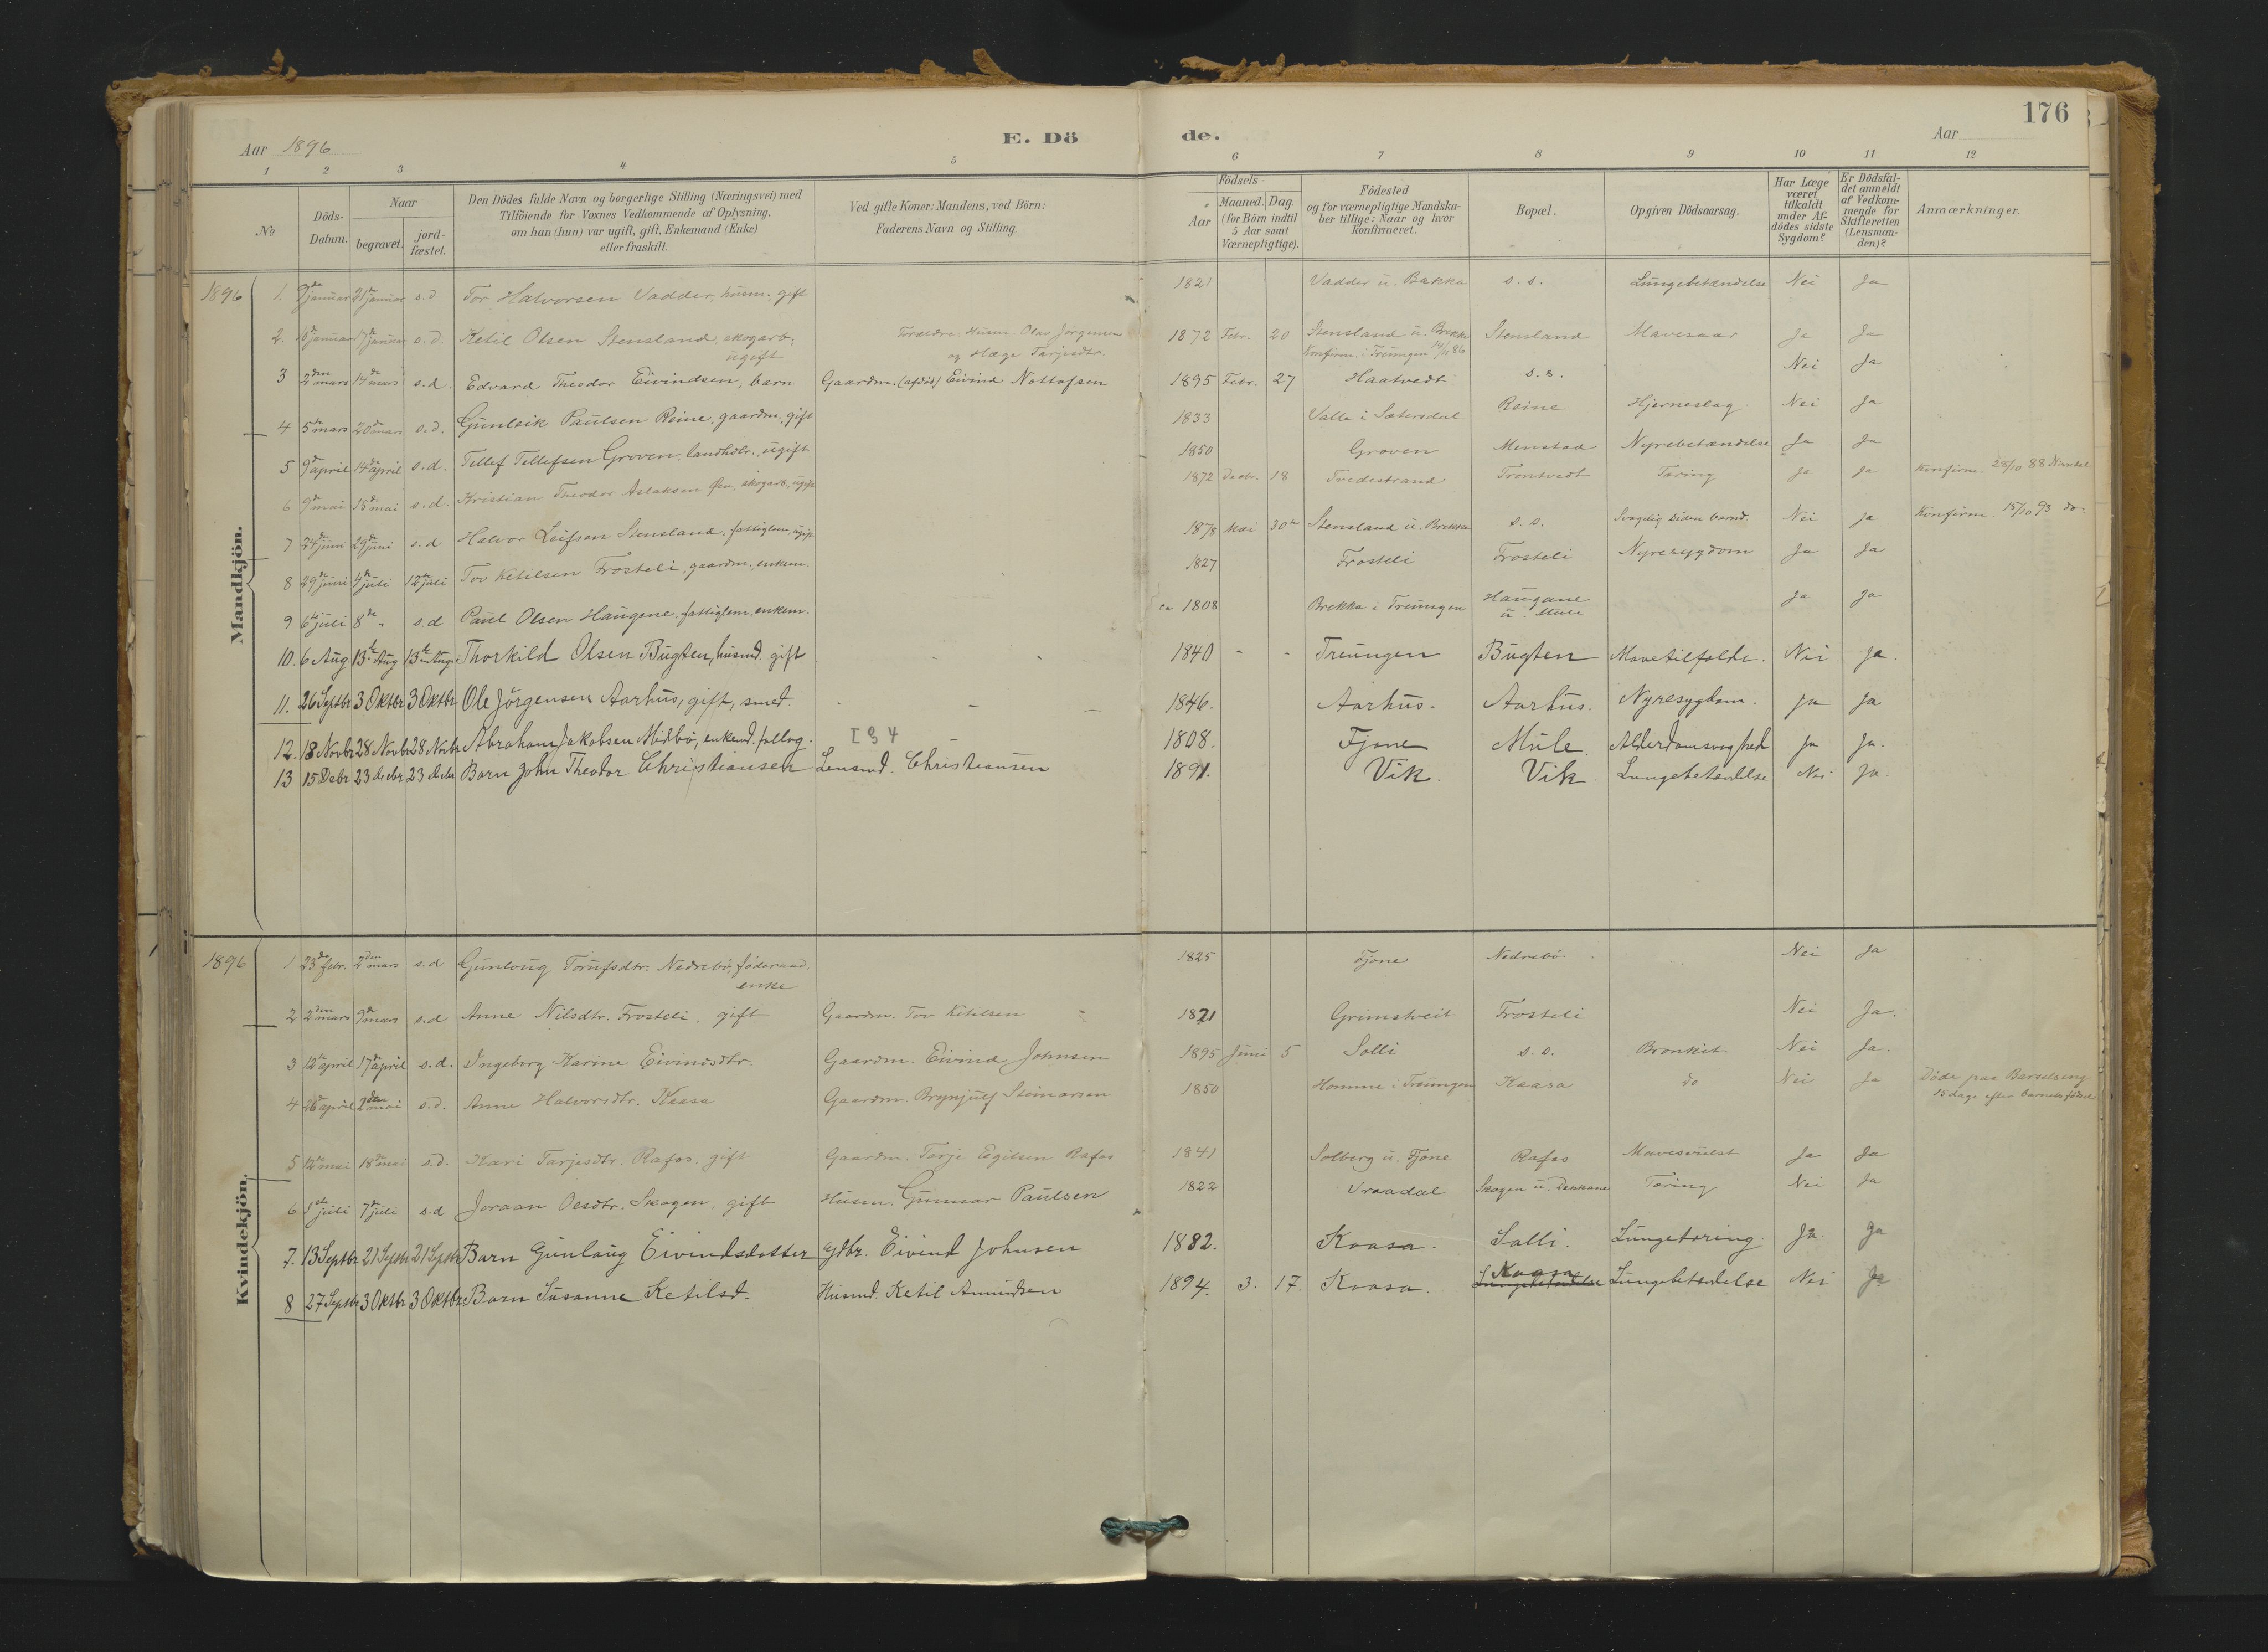 176
Aar 1896
E. Dö
de.
Aar
1 2 3 4 5 6 7 8 9 10 11 12
№
Döds-Datum.
Naar
begravet.
jord-fæstet.
Den Dödes fulde Navn og borgerlige Stilling (Næringsvei) med
Tilföiende for Voxnes Vedkommende af Oplysning,
om han (hun) var ugift, gift, Enkemand (Enke)
eller fraskilt.
Ved gifte Koner: Mandens, ved Börn:
Faderens Navn og Stilling.
Födsels-
Aar
Maaned. Dag.
(for Börn indtil
5 Aar samt
Værnepligtige).
Födested
og for værnepligtige Mandska-
ber tillige: Naar og hvor
konfirmeret.
Bopæl.
Opgiven Dödsaarsag.
Har Læge
været
tilkaldt
under Af-
dödes sidste
Sygdom?
Er Dödsfal-
det anmeldt
af Vedkom-
mende for
Skifteretten
(Lensman-
den)?
Anmærkninger.
Mandkjön.
1896 1. januar 21 januar s.d Tor Halvorsen Vadder, husm., gift 1821 Vadder u. Bakka s.s. Lungebetændelse Nei Ja
2. januar januar s.d. Ketil Olsen Stensland, skogarb. Forældre Husm. Olav Jørgensen 1872 Febr. 20 Stensland u. Brekka Stensland Mavesaar Ja Ja
ugift og Hæge Tarjesdtr. Konfirm. i Treungen 86
3 2den mars 17de mars s.d. Edvard Theodor Eivindsen, barn Gaardm. (afdød) Eivind Nottofsen 1895 Febr. 27 Haatvedt s.s. Nei Ja
4 5te mars 20de mars s.d. Gunleik Paulsen Reine, gaardm., gift 1833 Valle i Sætersdal Reine Hjerneslag Nei Ja
5 9de april 14de april s.d. Tellef Tellefsen Groven, landhdlr., ugift 1850 Groven Menstad Nyrebetændelse Ja Ja
6 9de mai 15de mai s.d. Kristian Theodor Aslaksen skogarb., ugift 1872 Decbr. 18 Tvedestrand Trontvedt Tæring Ja Ja Konfirm. 28/10 88
7 24de juni 29de juni s.d Halvor Leifsen Stensland, fattiglem, ugift 1878 Mai 30te Stensland u. Brekka s.s. Svagelig siden barnd. Nei Ja Konfirm. 15/10 93 do
8 29de juni 4de juli 12te juli Tov Ketilsen Frosteli, gaardm., enkem. 1827 Frosteli Frosteli Nyresygdom Ja Ja
9 6te juli 8de " s.d Paul Olsen Haugene, fattiglem, enkem. ca 1808 Brekka i Treungen Haugane Ja Ja
10. 6 Aug 13de Aug 13de Aug. Thorkild Olsen Bugten, husmd. gift - - 1840 - - Treungen Bugten Mavetilfælde. Nei Ja.
11. 26 Septbr 3 Oktbr 3 Oktbr Ole Jörgensen Aarhus, gift, smed. - - - 1846. Aarhus. Aarhus. Nyresygdom. Ja Ja
12. 18 Novbr 28 Novbr 28 Novbr Abraham Jakobsen Midbö, enkemd. fattlg. - 1808. Fjone Mule. Alderdomssvaghed Ja Ja.
13 15 Debr 23 decbr 23 decbr Barn John Theodor Christiansen Lensmd. Christiansen 1891. Vik. Vik. Lungebetendelse Nei Ja.
Kvindekjön.
1896 1 23de febr. 2den mars s.d Gunloug Torufsdtr. Nedrebö, föderaad, 1825 Fjone Nedrebö Nei Ja
enke
2 2den mars 9de mars s.d Anne Nilsdtr. Frosteli, gift Gaardm. Tov Ketilsen 1821 Grimstveit Frosteli Nei Ja.
3 12te april 17de april s.d. Ingeborg Karine Eivindsdtr. Gaardm. Eivind Johnsen 1895 Juni 5 Solli s.s. Bronkit Nei Ja.
4 26de april 2den mai s.d. Anne Halvorsdtr. Kaasa Gaardm. Brynjulf Steinarsen 1850 Homme i Treungen Kaasa do Nei Ja Döde paa Barselseng
15 dage efter barnets födsel
5 12te mai 18de mai s.d. Kari Tarjesdtr. Rafos, gift Gaardm. Tarje Egilsen Rafos 1841 Solberg u. Fjone Rafos Mavesvulst Ja Ja
6 1ste juli 7de juli s.d Joraan Oesdtr. Skogen, gift Husm. Gunnar Paulsen 1822 Vraadal Skogen u. Tæring Nei Ja
7. 13 Septbr 21 Septbr 21 Septbr Barn Gunlaug Eivindsdatter gdbr. Eivind Johnsen 1882. Kaasa. Solli. Lungetæring. Ja. Ja
8 27 Septbr 3 Oktbr 3 Oktbr Barn Susanne Ketilsd. Husmd. Ketil Amundsen 1894. 3. 17. Kaasa. Kaasa Lungebetendelse Nei Ja